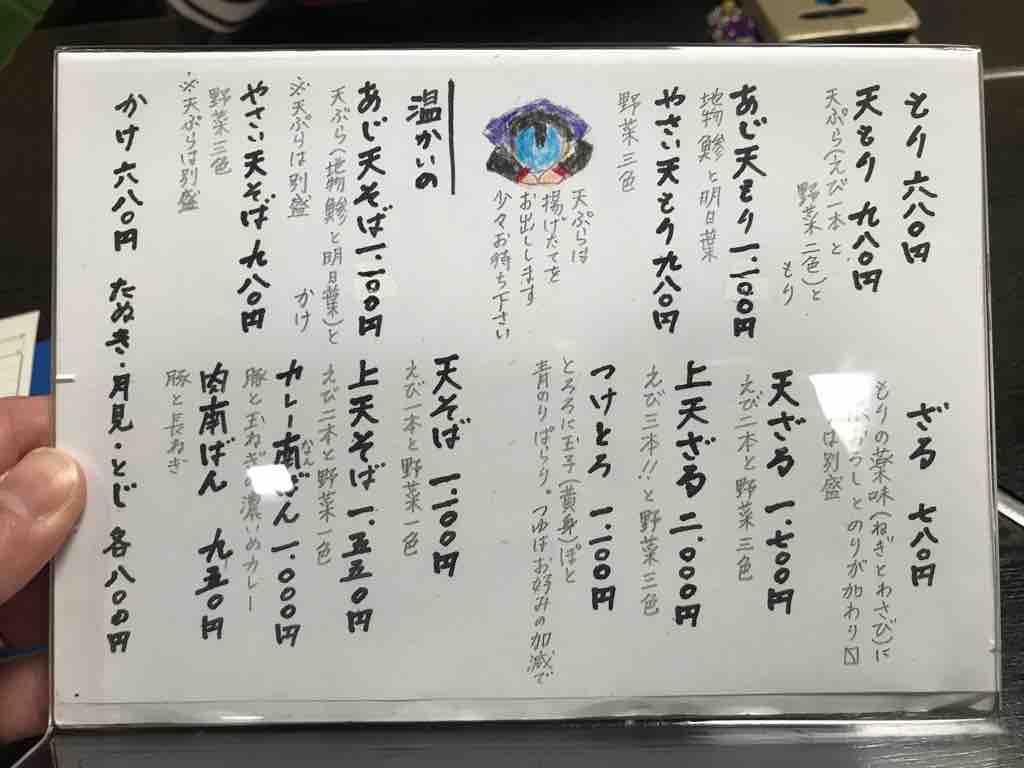 もり 六八〇円
天もり 九八〇円
天ぷら(えび一本と
野菜二色)と
もり
あじ天もり 一.一〇〇円
地物鯵と明日葉
やさい天もり 九八〇円
野菜三色
天ぷらは
揚げたてを
お出しします
少々お待ち下さい
ざる 七八〇円
もりの薬味(ねぎとわさび)に
うしとのりが加わり〼
は別盛
天ざる 一.七〇〇円
えび二本と野菜三色
上天ざる 二.〇〇〇円
えび三本!!と野菜三色
つけとろ 一.二〇〇円
とろろに玉子(黄身)ぽと
青のりぱらり。つゆはお好みの加減で
温かいの
あじ天そば 一.一〇〇円
天ぷら(地物鯵と明日葉)と
かけ
※天ぷらは別盛
やさい天そば 九八〇円
野菜三色
※天ぷらは別盛
天そば 一.二〇〇円
えび一本と野菜一色
上天そば 一.五五〇円
えび二本と野菜一色
カレー南ばん 一.〇〇〇円
なん
豚と玉ねぎの濃いめカレー
肉南ばん 九五〇円
豚と長ねぎ
かけ 六八〇円 たぬき・月見・とじ 各八〇〇円